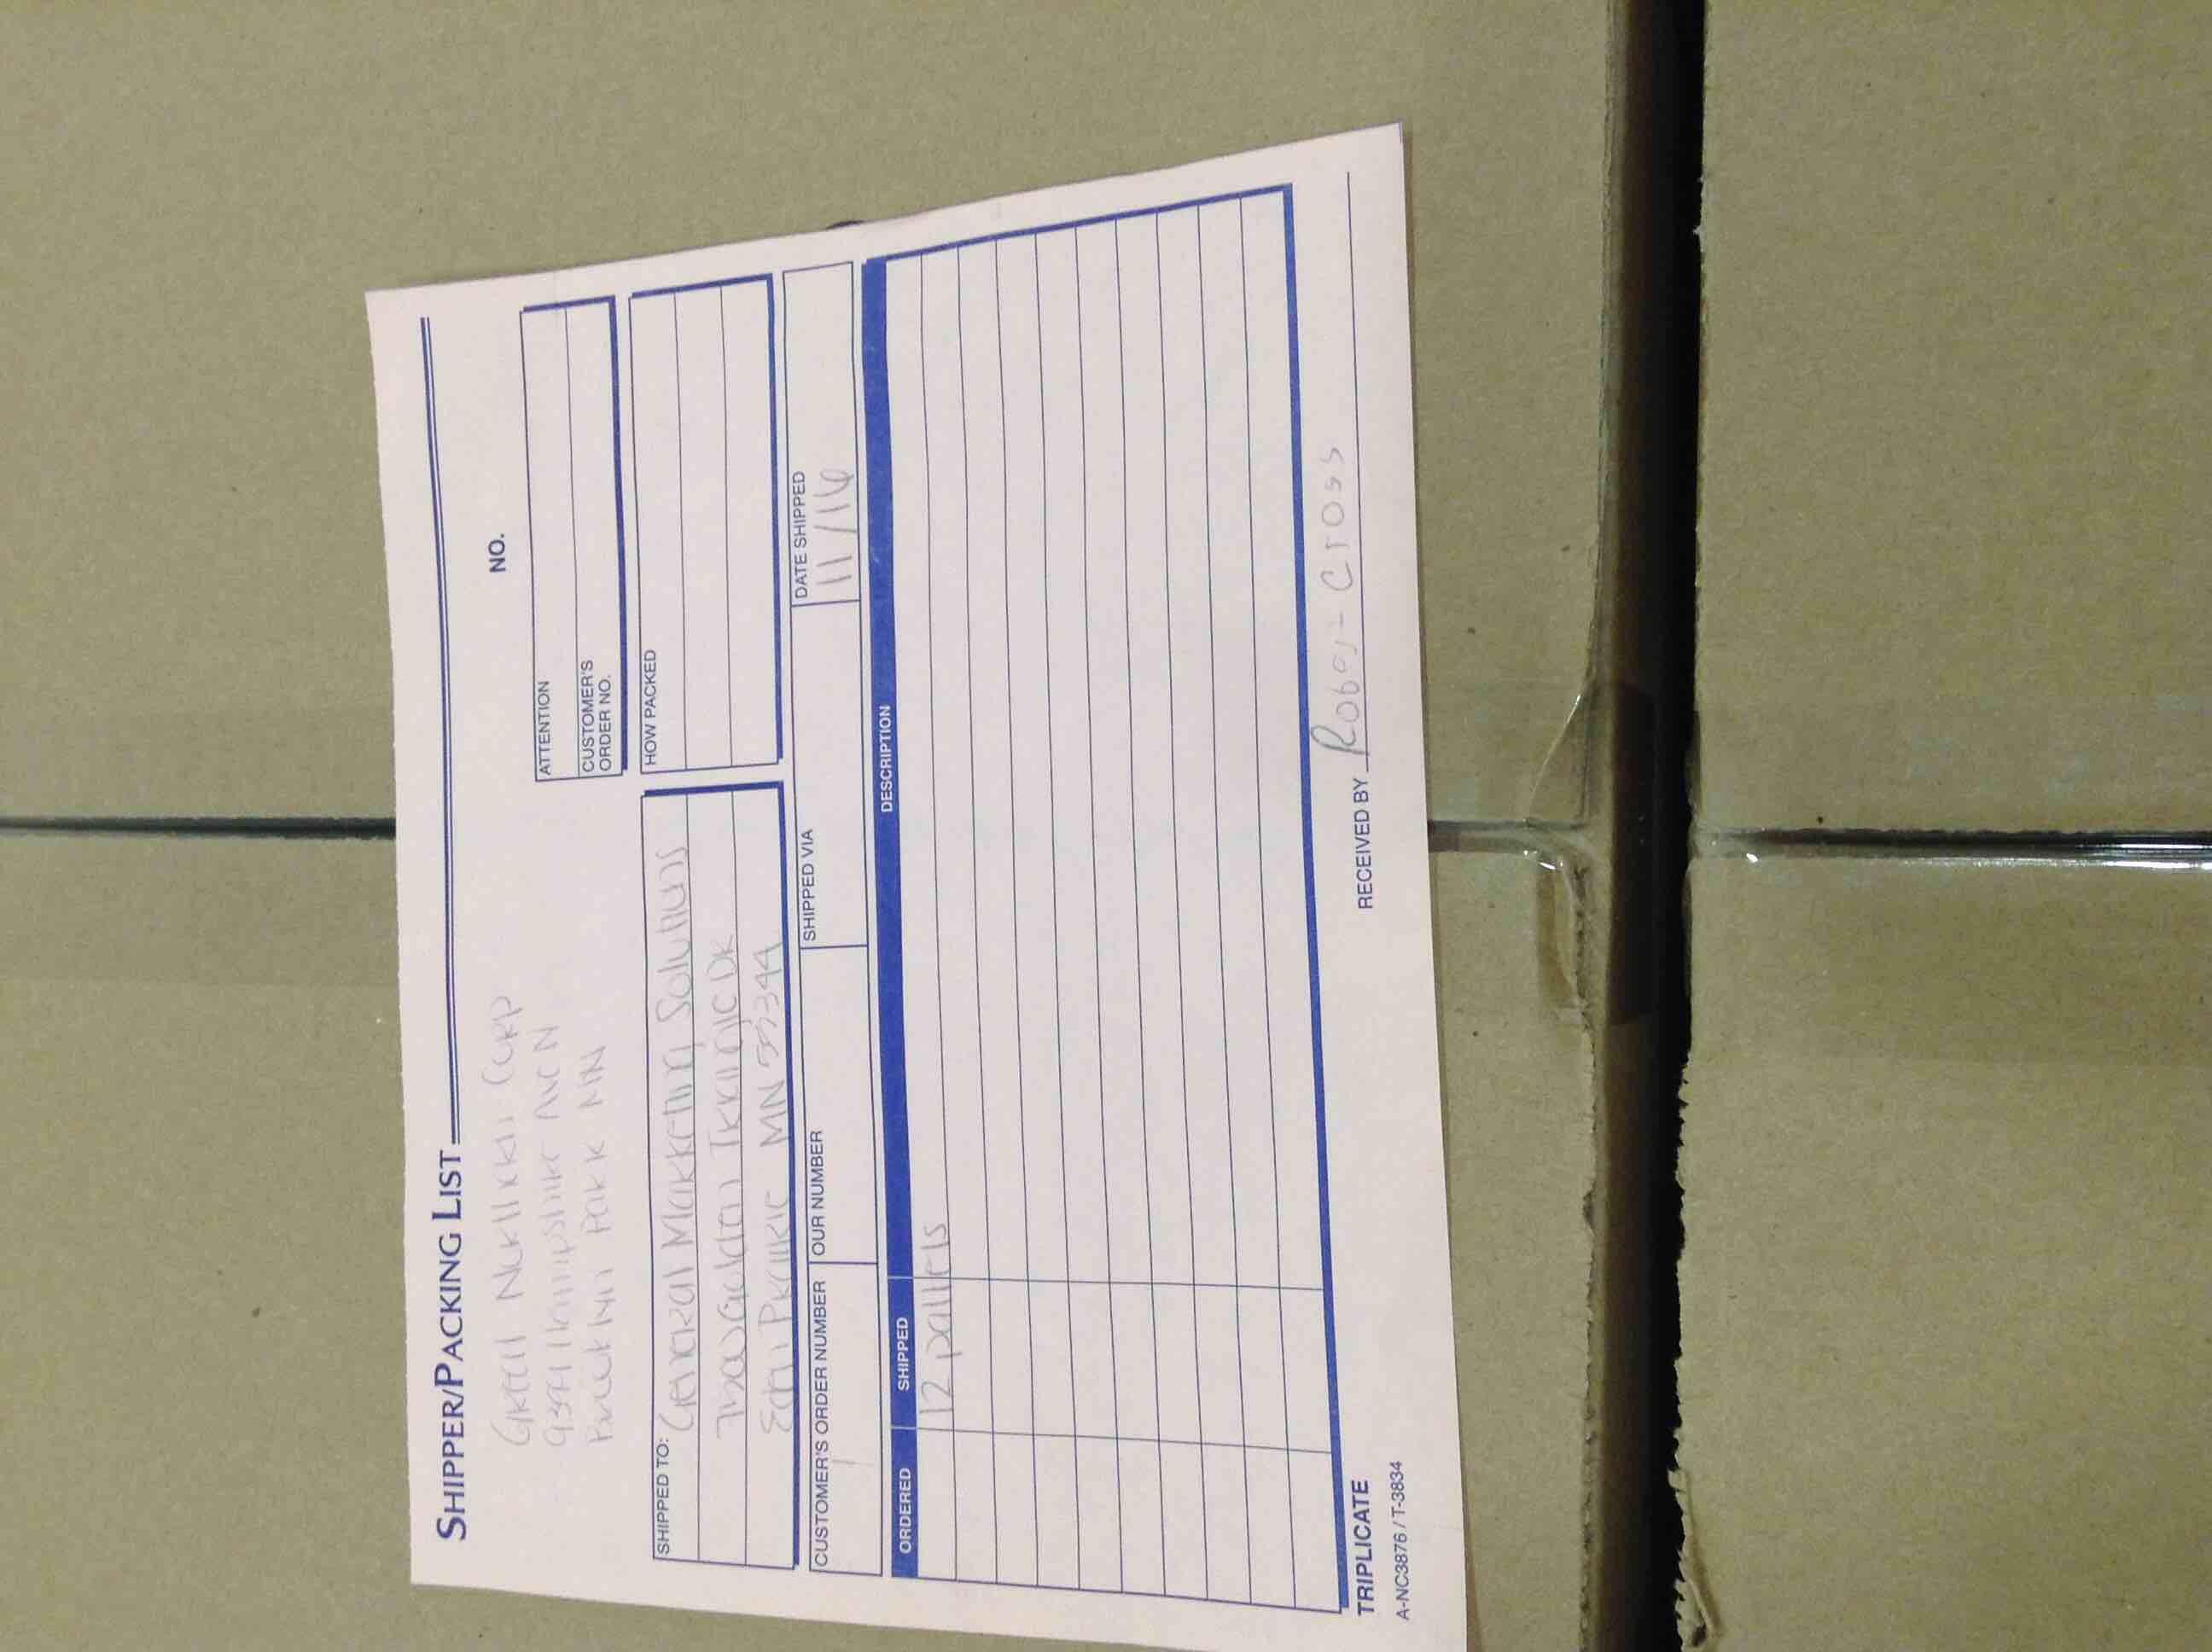 SHIPPER/PACKING LIST
GREEN Corp
Ave N
Park MN
NO.
ATTENTION
CUSTOMER'S
ORDER NO.
SHIPPED TO: General Marketing Solutions
Dr
Eden Prairie MN 55344
HOW PACKED
CUSTOMER'S ORDER NUMBER
OUR NUMBER
SHIPPED VIA
DATE SHIPPED
11/16
ORDERED SHIPPED DESCRIPTION
12 pallets
TRIPLICATE
A-NC3876 / T-3834
RECEIVED BY Cross